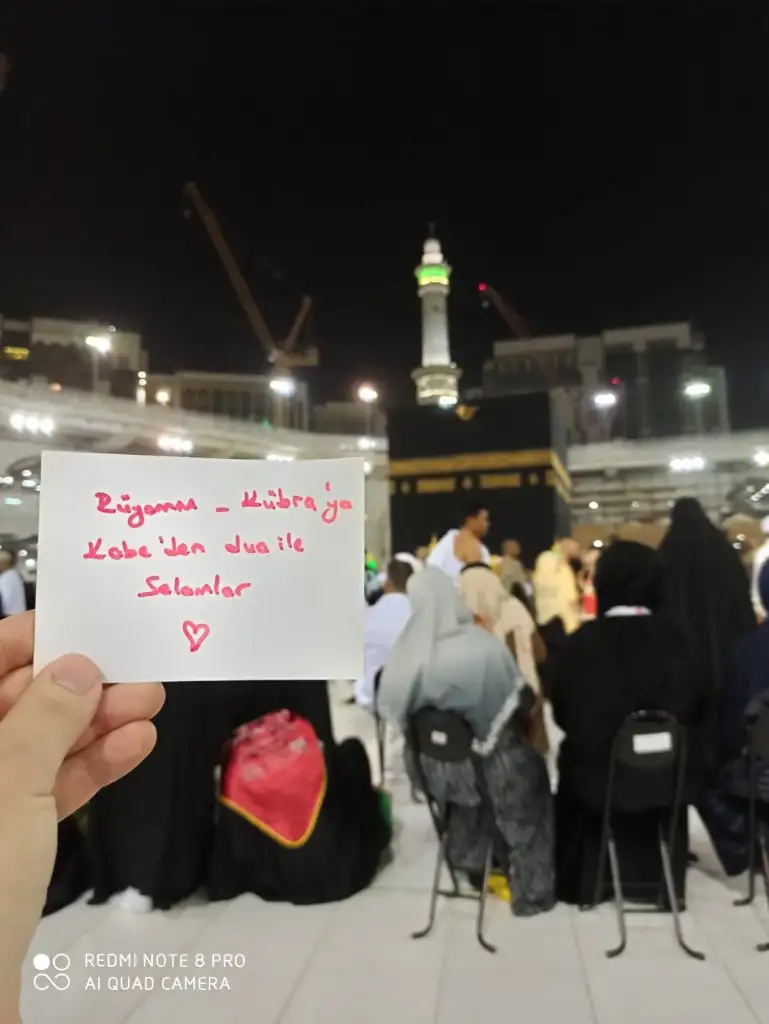 Rüyamm - Kübra'ya
Kabe'den dua ile
Selamlar
REDMI NOTE 8 PRO
AI QUAD CAMERA